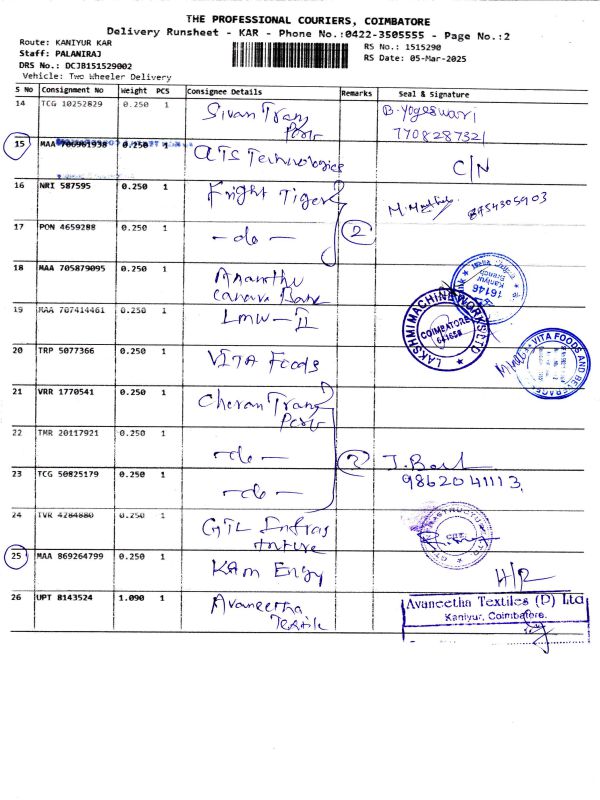 THE PROFESSIONAL COURIERS, COIMBATORE
Delivery Runsheet - KAR - Phone No.:0422-3505555 - Page No.:2
Route: KANIYUR KAR
RS No.: 1515290
Staff: PALANIRAJ
RS Date: 05-Mar-2025
DRS No.: DCJB151529002
Vehicle: Two Wheeler Delivery
S No Consignment No Weight PCS Consignee Details Remarks Seal & Signature
14 TCG 10252829 0.250 1 Sivan Trans Ports B.Yogeswari
7708287321
15 MAA 706961938 0.250 1 ATS Technologies C/N
16 NRI 587595 0.250 1 Fright Tiger 8954305903
17 PON 4659288 0.250 1 -do- 2
18 MAA 705879095 0.250 1 Ananthu
Canara Bank
16146
Kaniyur
Branch
19 MAA 707414461 0.250 1 LMW-II
LAKSHMI MACHINE WORKS LTD
COIMBATORE
641658
20 TRP 5077366 0.250 1 VITA Foods
VITA FOODS AND BEVERAGES
21 VRR 1770541 0.250 1 Cheran Trans
Ports
22 TMR 20117921 0.250 1 -do- 2 J.
9862041113
23 TCG 50825179 0.250 1 -do-
24 TVR 4284880 0.250 1 GTL Infras
tructure
25 MAA 869264799 0.250 1 KAm Engy H/R
26 UPT 8143524 1.090 1 Avaneetha
Textile
Avaneetha Textiles (P) Ltd
Kaniyur, Coimbatore.